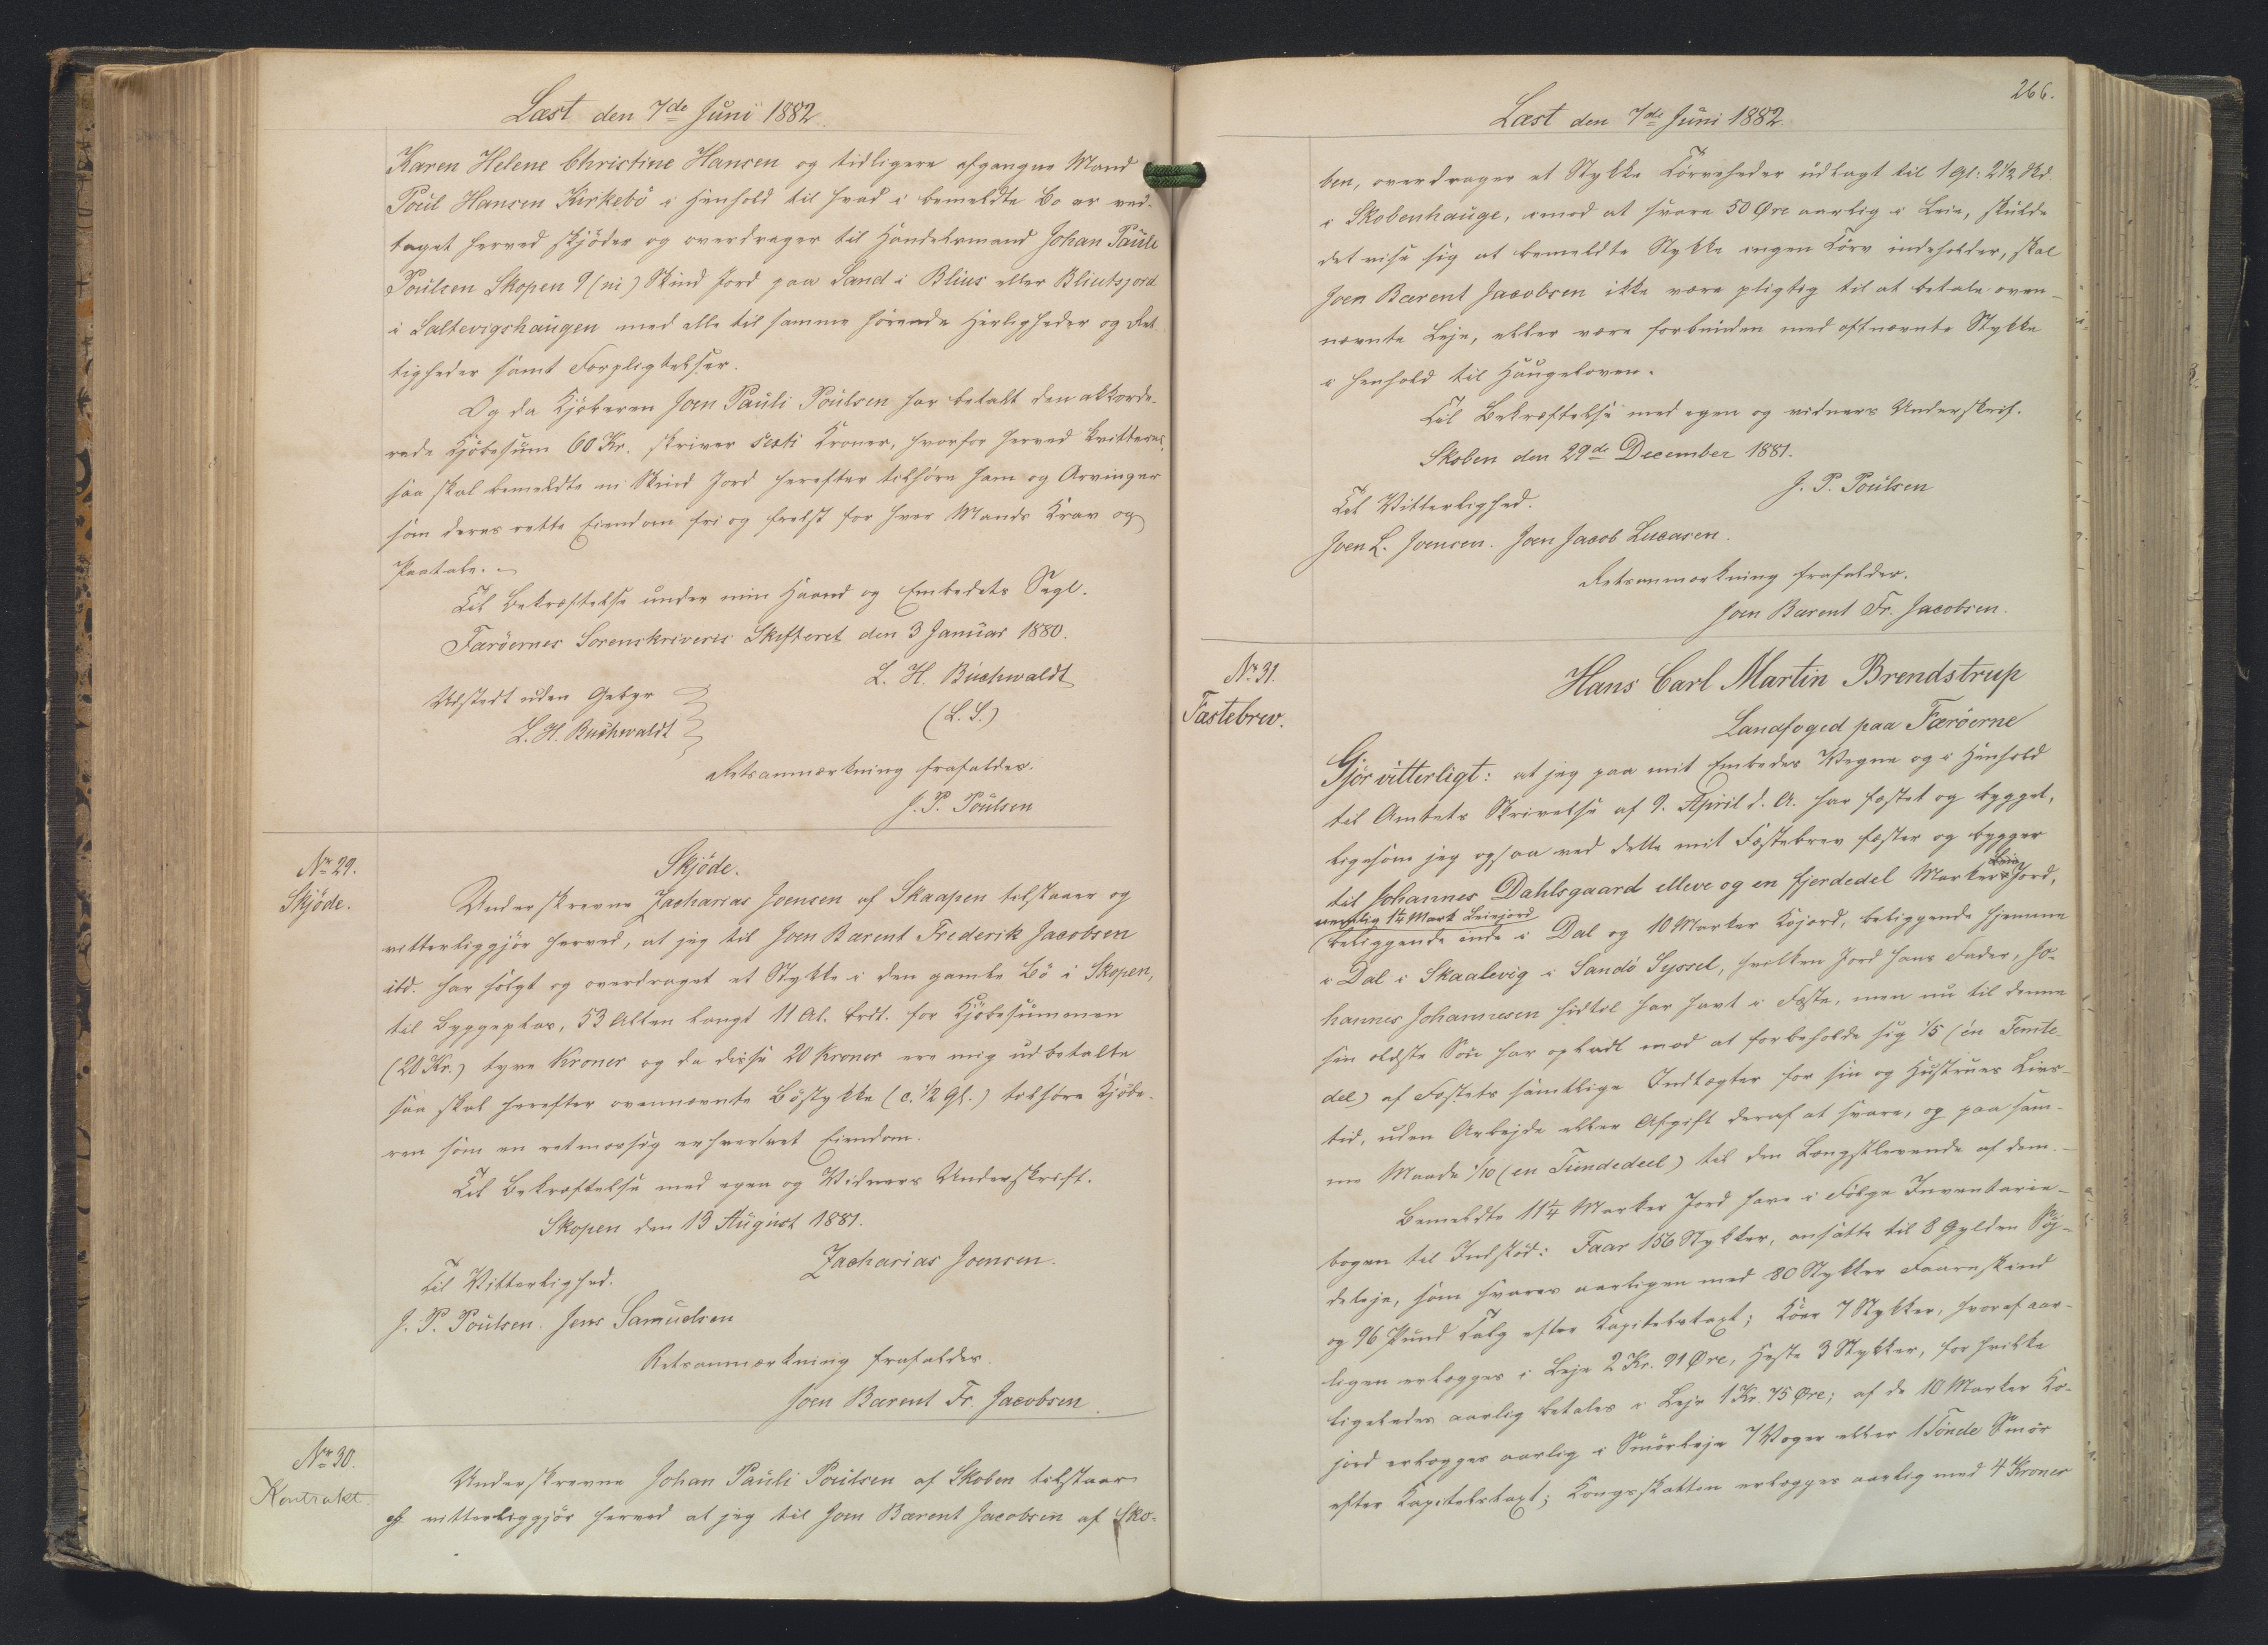 Læst den 7de Juni 1882.
Karen Helene Christine Hansen og tidligere afgangne Mand
Poul Hansen Kirkebö i Henhold til hvad i bemeldte Bo er ved-
taget herved skjöder og overdrager til Handelsmand Johan Pauli
Poulsen Skopen 9 (ni) Skind Jord paa Sand i Blius eller Bliutsjord
i Saltevigshaugen med alle til samme hörende Herligheder og Ret
tigheder samt Forpligtelser.
Og da Kjöberen Joen Pauli Poulsen har betalt den akkorde-
rede Kjöbesum 60 Kr. skriver sexti Kroner, hvorfor herved kvitteres,
saa skal bemeldte ni Skind Jord herefter tilhöre ham og Arvinger
som deres rette Eiendom fri og frelst for hver Mands Krav og
Paatale.
Til Bekræftelse under min Haand og Embedets Segl.
Færöernes Sorenskriveris Skifteret den 3 Januar 1880.
L. H. Buchwaldt
(L. S.)
Udstedt uden Gebyr
L. H. Buchwaldt
Retsanmærkning frafaldes.
J. P. Poulsen
No 29.
Skjöde.
Skjöde.
Underskrevne Zacharias Joensen af Skaapen tilstaaer og
vitterliggjör herved, at jeg til Joen Barent Frederik Jacobsen
ibd. har solgt og overdraget et Stykke i den gamle Bö i Skopen,
til Byggeplas, 53 Allen langt 11 Al. bredt. for Kjöbesummen
(20 Kr.) tyve Kroner og da disse 20 Kroner ere mig udbetalte
saa skal herefter ovennævnte Böstykke (c. 1/2 Gl.) tilhöre Kjöbe-
ren som en retmæssig erhvervet Eiendom.
Til Bekræftelse med egen og Vidners Underskrift.
Skopen den 13 August 1881.
Zacharias Joensen.
Til Vitterlighed.
J. P. Poulsen. Jens Samuelsen
Retsanmærkning frafaldes.
Joen Barent Fr. Jacobsen.
No 30.
Kontrakt.
Underskrevne Johan Pauli Poulsen af Skoben tilstaar
og vitterliggjör herved at jeg til Joen Barent Jacobsen af Sko-
266.
Læst den 7de Juni 1882.
ben, overdrager et Stykke Törveheder udlagt til 1 Gl: 2 1/2 Skd.
i Skobenhauge, imod at svare 50 Øre aarlig i Leie, skulde
det vise sig at bemeldte Stykke ingen Törv indeholder, skal
Joen Barent Jacobsen ikke være pligtig til at betale oven-
nævnte Leje, eller være forbunden med oftnævnte Stykke
i Henhold til Haugeloven.
Til Bekræftelse med egen og vidners Underskrif.
Skoben den 29de December 1881.
J. P. Poulsen
Til Vitterlighed.
Joen L. Joensen. Joen Jacob Lucasen.
Retsanmærkning frafaldes.
Joen Barent Fr. Jacobsen.
No 31.
Fæstebrev.
Hans Carl Martin Brendstrup
Landfoged paa Færöerne
Gjör vitterligt: at jeg paa mit Embedes Vegne og i Henhold
til Amtets Skrivelse af 9. April d. A. har fæstet og bygget,
ligesom jeg ogsaa ved dette mit Fæstebrev fæster og bygger
til Johannes Dahlsgaard elleve og en fjerdedel Marker Jord,
nemlig 1 1/4 Mark Leiejord
beliggende inde i Dal og 10 Marker Kojord, beliggende hjemme
i Dal i Skaalevig i Sandö Syssel, hvilken Jord hans Fader, Jo-
hannes Johannesen hidtil har havt i Fæste, men nu til denne
sin ældste Sön har opladt mod at forbeholde sig 1/5 (én Femte
del) af Fæstets samtlige Indtægter for sin og Hustrues Livs-
tid, uden Arbejde eller Afgift deraf at svare, og paa sam-
me Maade 1/10 (en Tiendedeel) til den Længstlevende af dem.
Bemeldte 11 1/4 Marker Jord have i Fölge Inventarie-
bogen til Indstöd: Faar 156 Stykker, ansatte til 8 Gylden Söj-
deleje, som svares aarligen med 80 Stykker Faareskind
og 96 Pund Talg efter Kapitelstaxt; Köer 7 Stykker, hvoraf aar-
ligen erlægges i Leje 2 Kr. 91 Øre, Heste 3 Stykker, for hvilke
ligeledes aarlig betales i Leje 1 Kr. 75 Øre; af de 10 Marker Ko-
jord erlægges aarlig i Smörleje 7 Voger eller 1 Tönde Smör
efter Kapitelstaxt; Kongsskatten erlægges aarlig med 4 Kroner